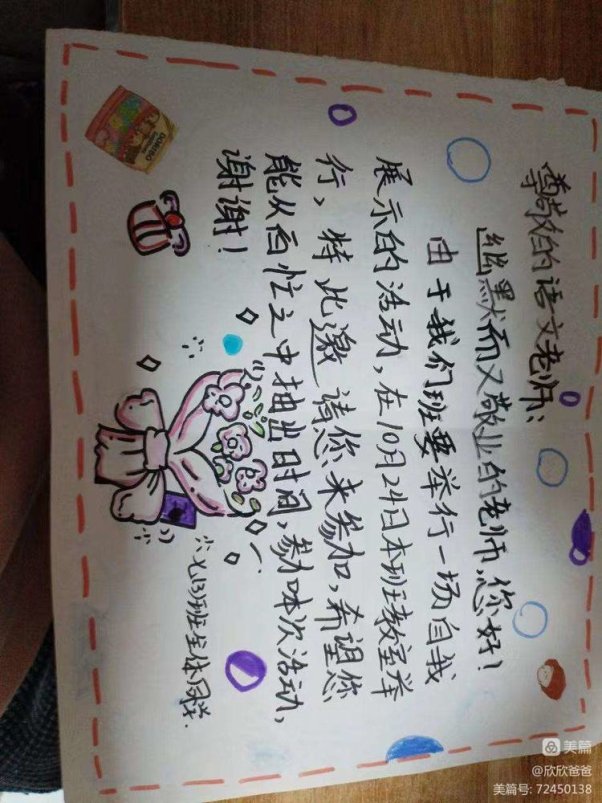 尊敬的语文老师:
幽默而又敬业的老师,您好!
由于我们班要举行一场自我
展示的活动,在10月24日本班教室举
行,特此邀请您来参加,希望您
能从百忙之中抽出时间,参加本次活动,
谢谢!
七(3)班全体同学
美篇
@欣欣爸爸
美篇号: 72450138